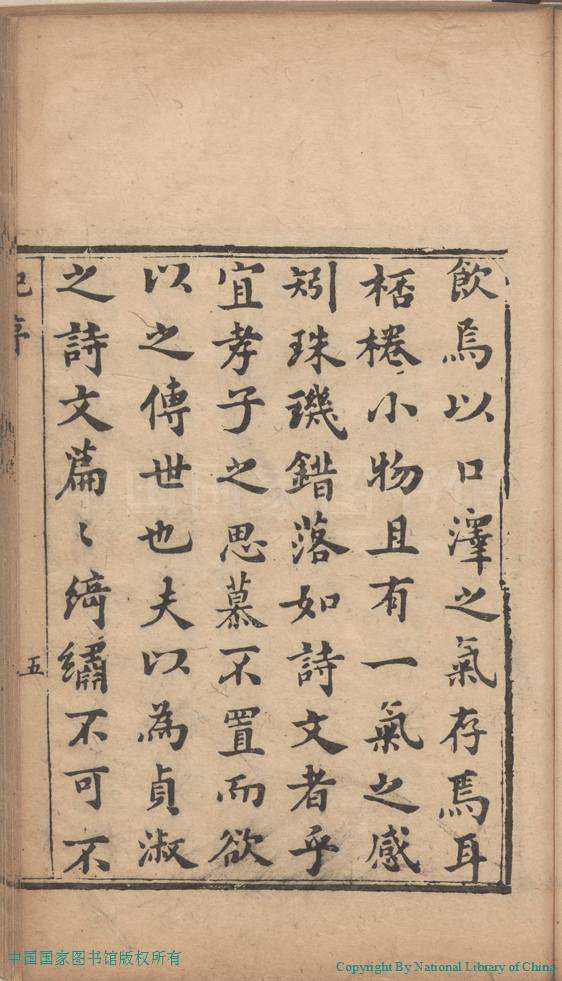 飲焉以口澤之氣存焉耳
桮棬小物且有一氣之感
矧珠璣錯落如詩文者乎
宜孝子之思慕不置而欲
以之傳世也夫以為貞淑
之詩文篇〻綺繡不可不
五
中国国家图书馆版权所有
Copyright By National Library of China